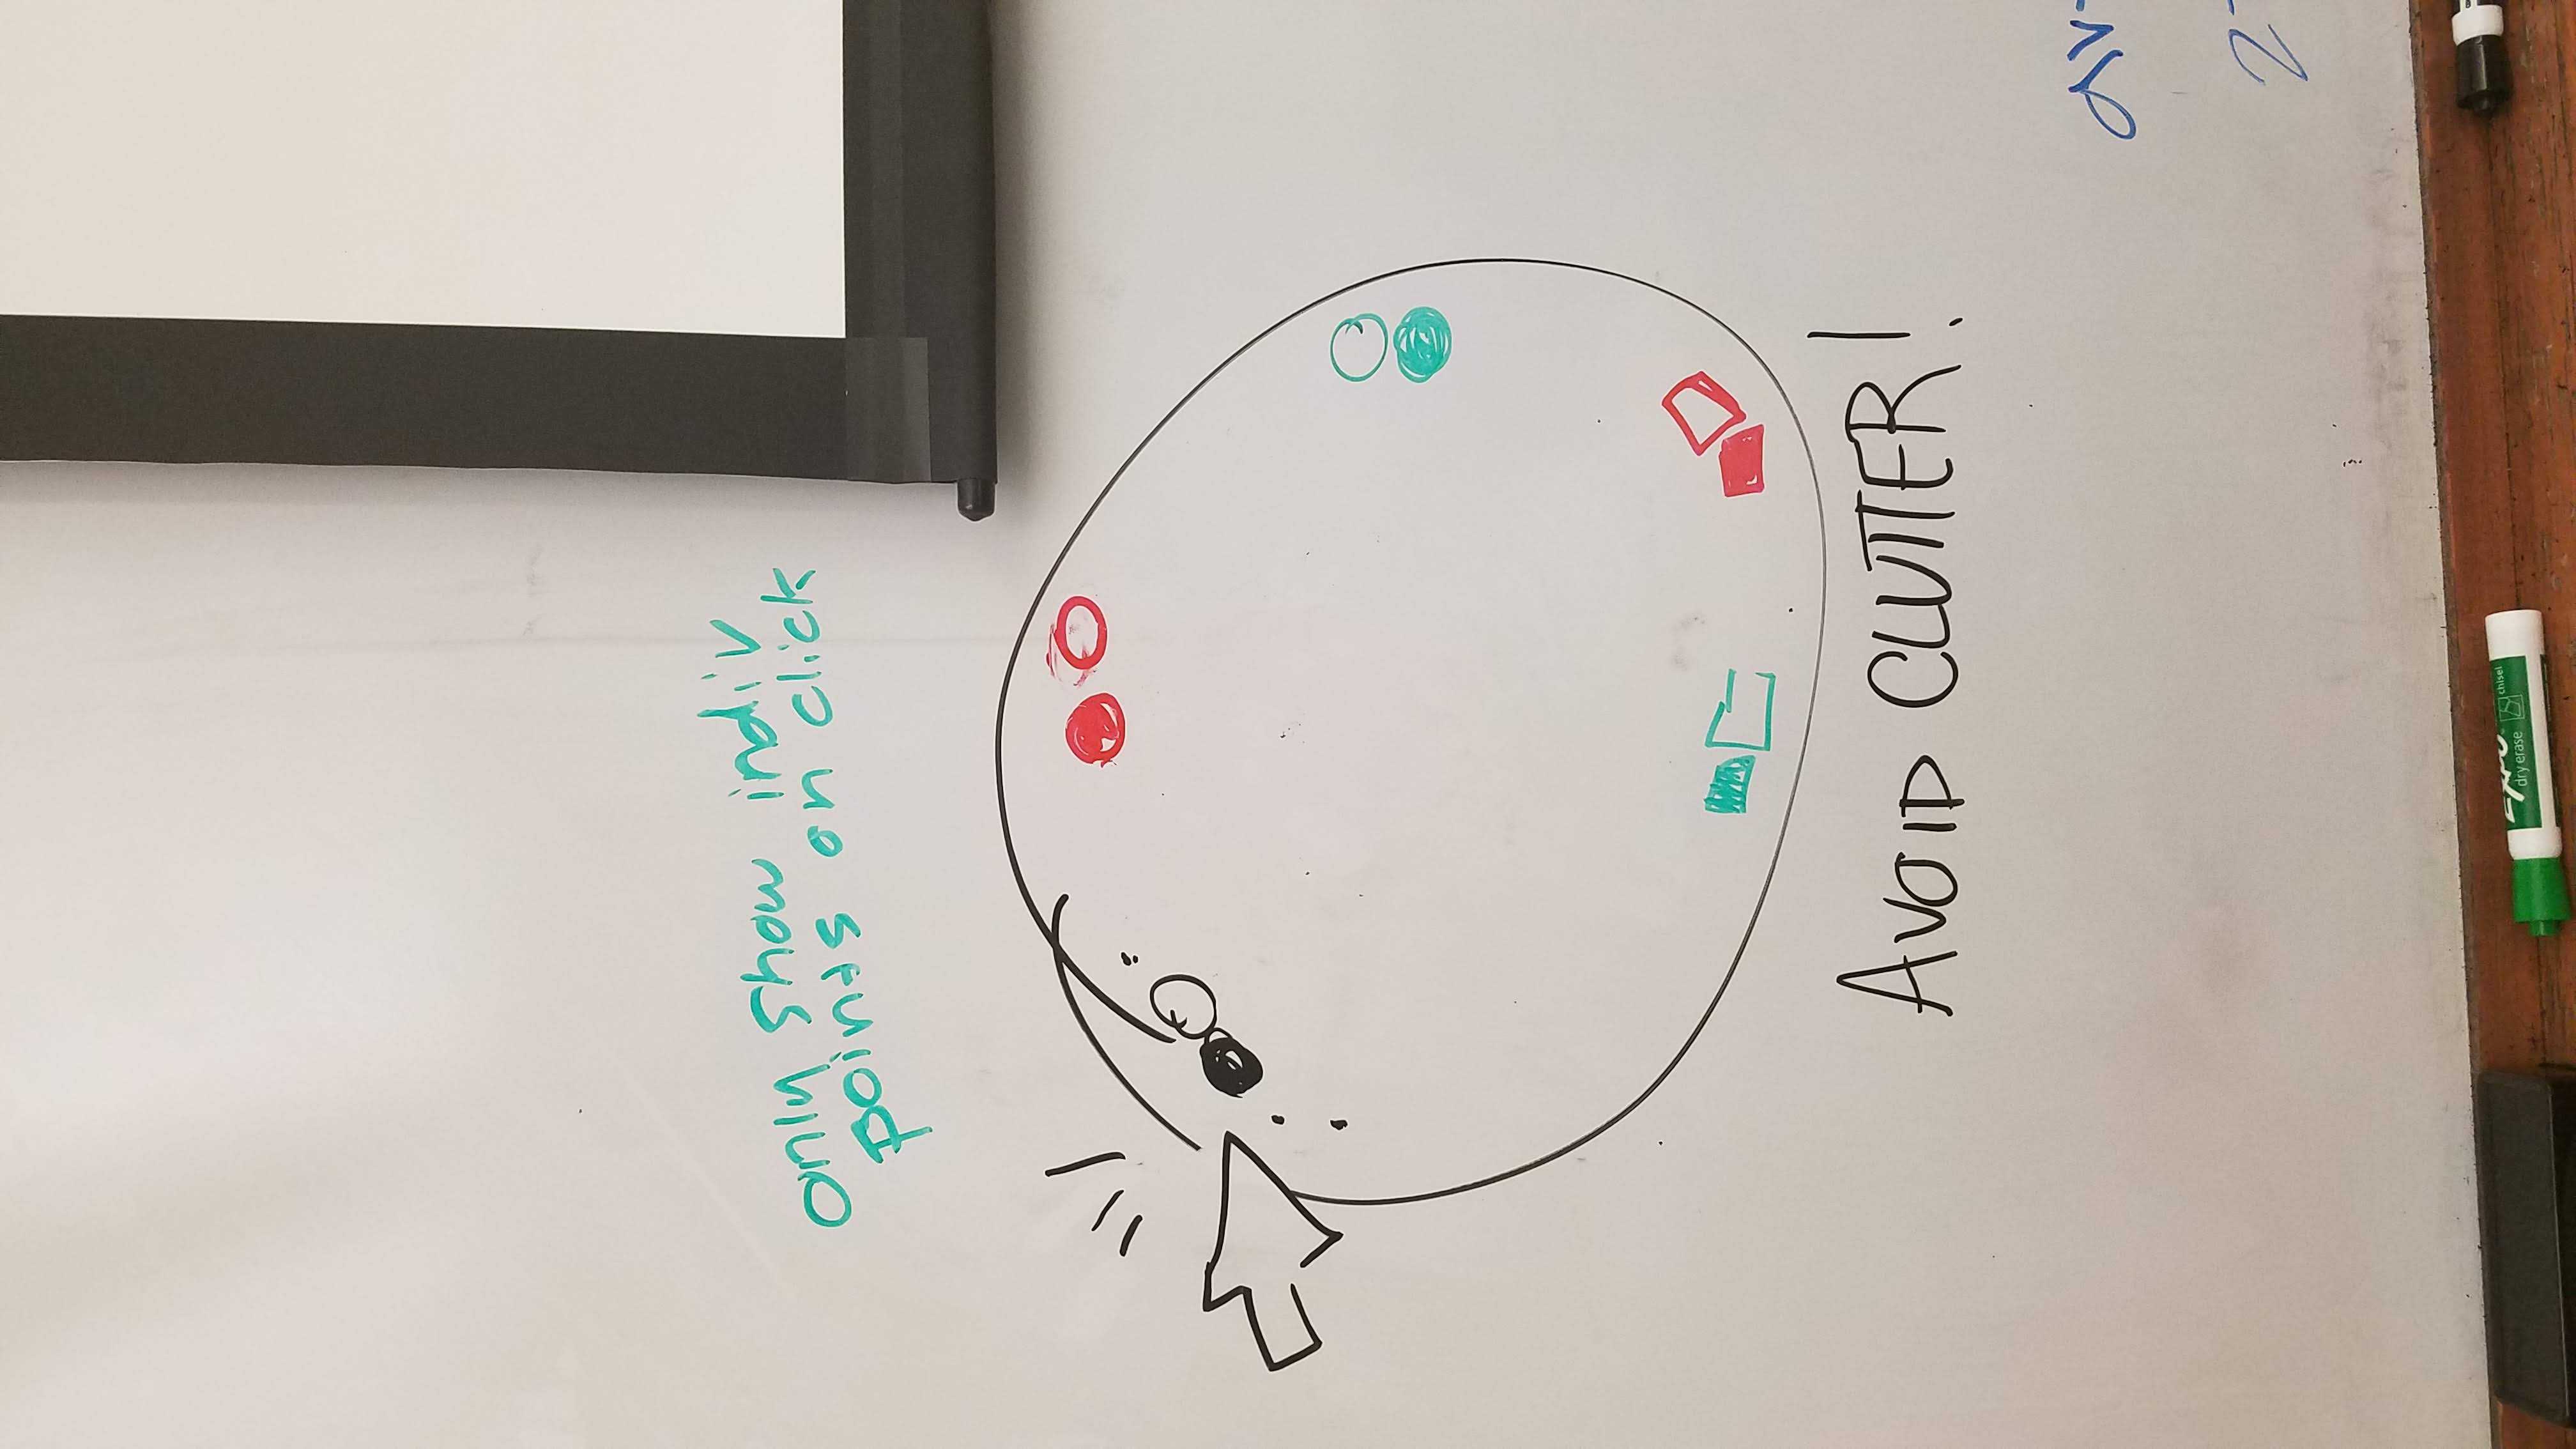 only show indiv
points on click
AVOID CLUTTER!
av
2
EXPO
dry erase
chisel